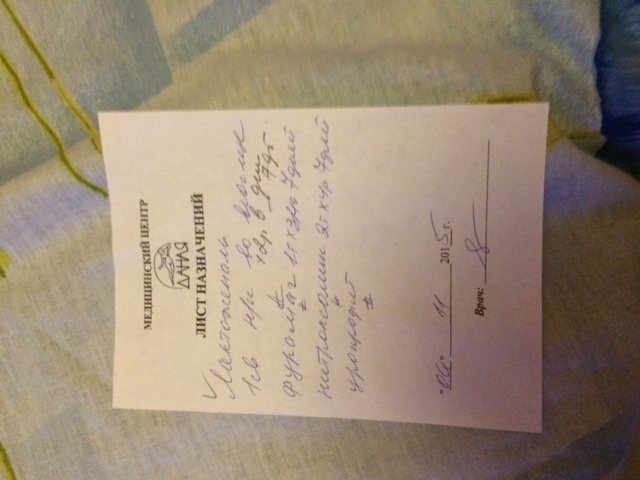 МЕДИЦИНСКИЙ ЦЕНТР
ДАНАЯ
ЛИСТ НАЗНАЧЕНИЙ
Лактожиналь
1св
во влаг
х2р в день
7дн
Фуромаг 1т х 3р 7дней
нитроксолин 2т х 4р 7дней
уропрофит
"06" 11 2015 г.
Врач: